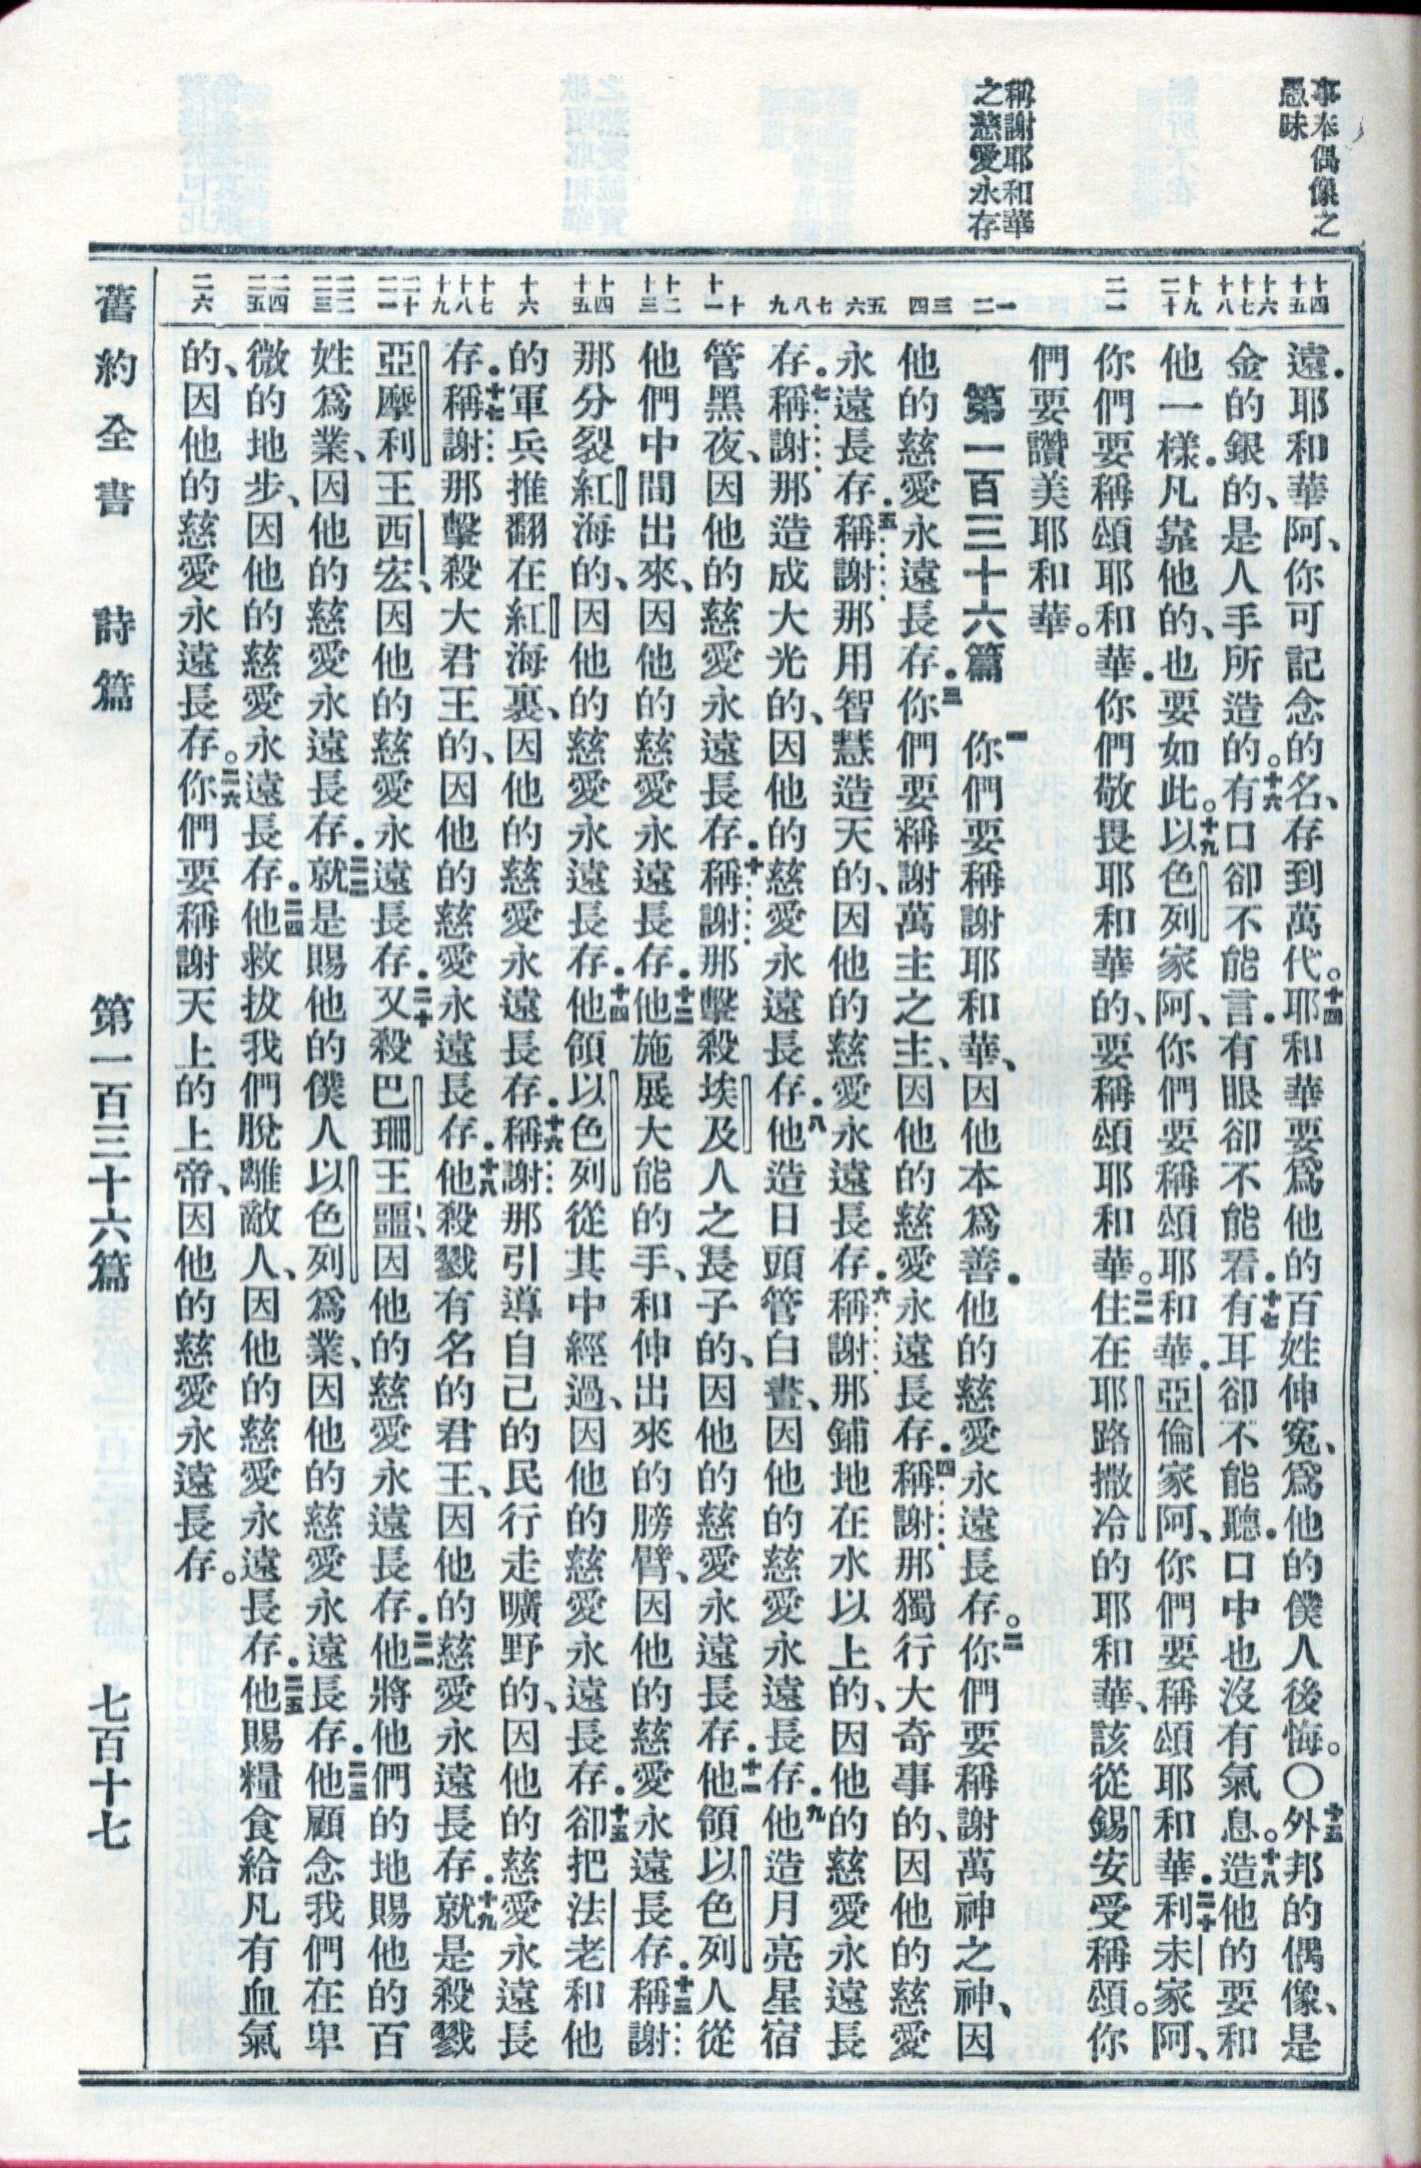 事奉偶像之
愚昧
稱謝耶和華
之慈愛永存
十四
十五
十六
十七
十八
十九
二十
二一
一
二
三
四
五
六
七
八
九
十
十一
十二
十三
十四
十五
十六
十七
十八
十九
二十
二一
二二
二三
二四
二五
二六
遠．耶和華阿、你可記念的名、存到萬代。十四耶和華要爲他的百姓伸冤、爲他的僕人後悔。〇十五外邦的偶像、是
金的銀的、是人手所造的。十六有口卻不能言．有眼卻不能看．十七有耳卻不能聽．口中也沒有氣息。十八造他的要和
他一樣．凡靠他的、也要如此。十九以色列家阿、你們要稱頌耶和華．亞倫家阿、你們要稱頌耶和華．二十利未家阿、
你們要稱頌耶和華．你們敬畏耶和華的、要稱頌耶和華。二一住在耶路撒冷的耶和華、該從錫安受稱頌。你
們要讚美耶和華。
第一百三十六篇　一你們要稱謝耶和華、因他本爲善．他的慈愛永遠長存。二你們要稱謝萬神之神、因
他的慈愛永遠長存．三你們要稱謝萬主之主、因他的慈愛永遠長存．四稱謝那獨行大奇事的、因他的慈愛
永遠長存．五稱謝那用智慧造天的、因他的慈愛永遠長存．六稱謝那鋪地在水以上的、因他的慈愛永遠長
存．七稱謝那造成大光的、因他的慈愛永遠長存．八他造日頭管白晝、因他的慈愛永遠長存．九他造月亮星宿
管黑夜、因他的慈愛永遠長存．十稱謝那擊殺埃及人之長子的、因他的慈愛永遠長存．十一他領以色列人從
他們中間出來、因他的慈愛永遠長存．十二他施展大能的手、和伸出來的膀臂、因他的慈愛永遠長存．十三稱謝
那分裂紅海的、因他的慈愛永遠長存．十四他領以色列從其中經過、因他的慈愛永遠長存．十五卻把法老和他
的軍兵推翻在紅海裏、因他的慈愛永遠長存．十六稱謝那引導自己的民行走曠野的、因他的慈愛永遠長
存．十七稱謝那擊殺大君王的、因他的慈愛永遠長存．十八他殺戮有名的君王、因他的慈愛永遠長存．十九就是殺戮
亞摩利王西宏、因他的慈愛永遠長存．二十又殺巴珊王噩、因他的慈愛永遠長存．二一他將他們的地賜他的百
姓爲業、因他的慈愛永遠長存．二二就是賜他的僕人以色列爲業、因他的慈愛永遠長存．二三他顧念我們在卑
微的地步、因他的慈愛永遠長存．二四他救拔我們脫離敵人、因他的慈愛永遠長存．二五他賜糧食給凡有血氣
的、因他的慈愛永遠長存。二六你們要稱謝天上的上帝、因他的慈愛永遠長存。
舊約全書　詩篇　第一百三十六篇　七百十七